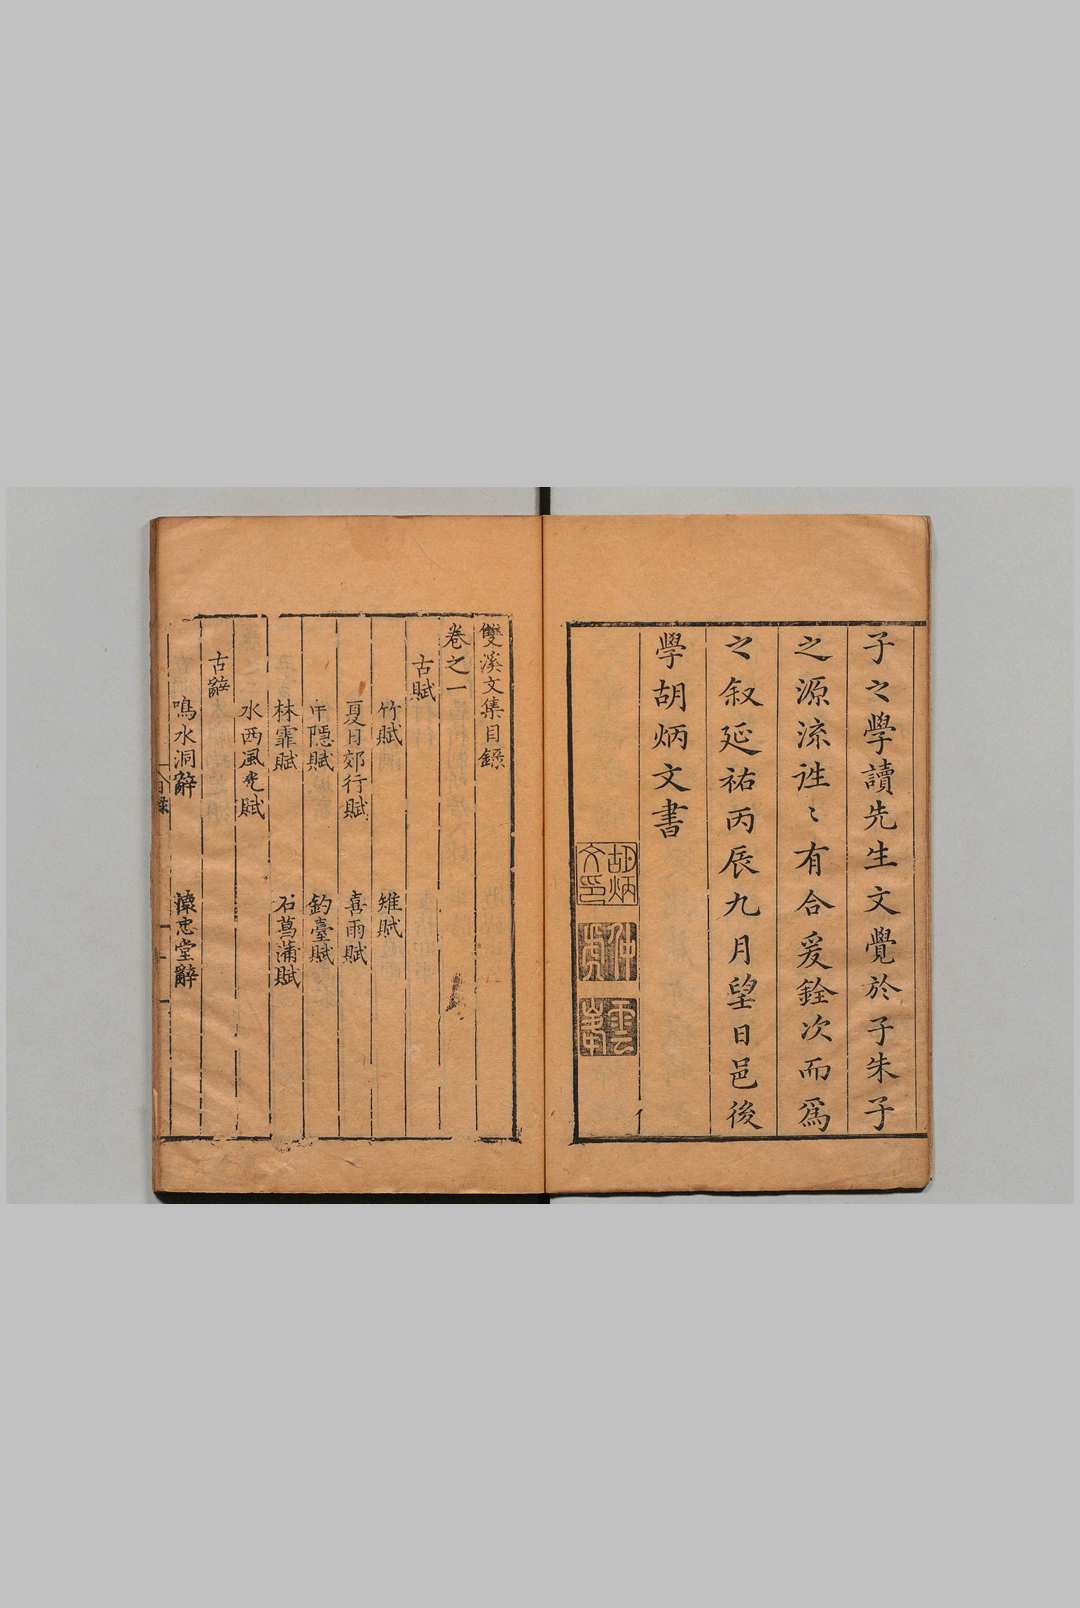 子之學讀先生文覺於子朱子
之源流徃〻有合爰銓次而爲
之叙延祐丙辰九月望日邑後
學胡炳文書
胡炳文印
仲虎
雲峯
雙溪文集目錄
卷之一
古賦
竹賦　雉賦
夏日郊行賦　喜雨賦
中隱賦　釣臺賦
林霏賦　石菖蒲賦
水西風光賦
古辭
鳴水洞辭　忠堂辭
目錄